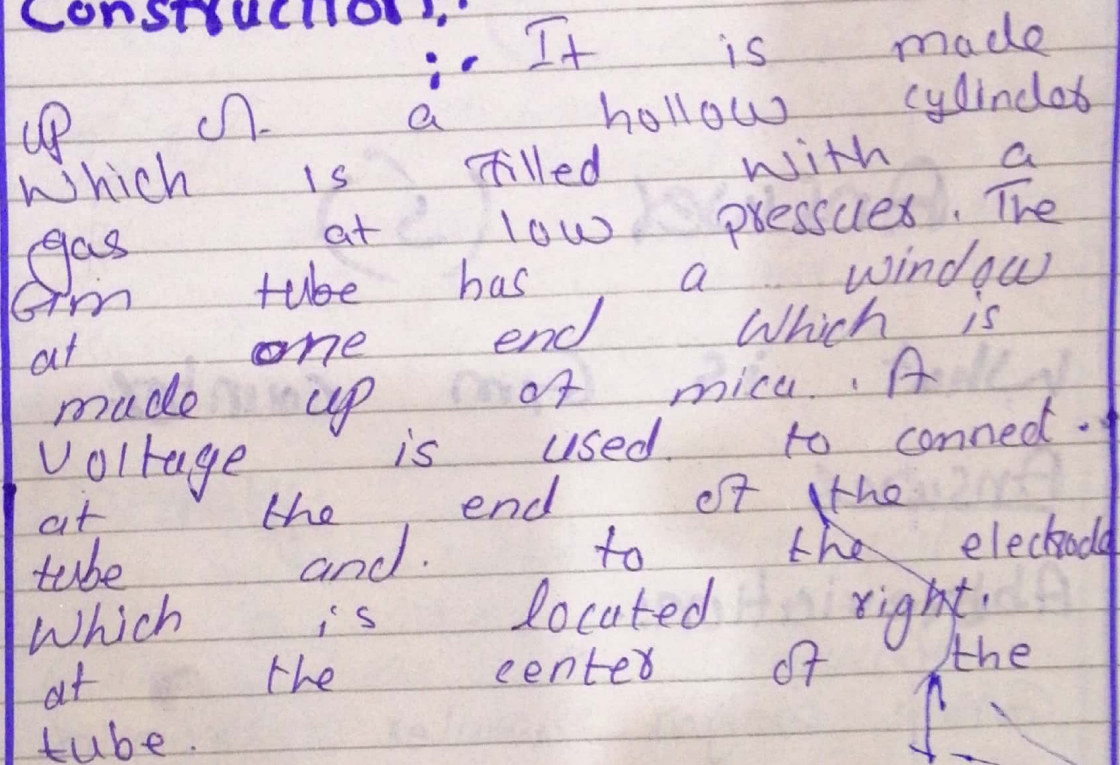 Construction:
:- It is made
up of a hollow cylinder
Which is filled with a
gas at low pressuer. The
Gm tube has a window
at one end Which is
made up of mica. A
Voltage is used to connect.
at the end of the
tube and. to the electrode
Which is located right.
at the center of the
tube.